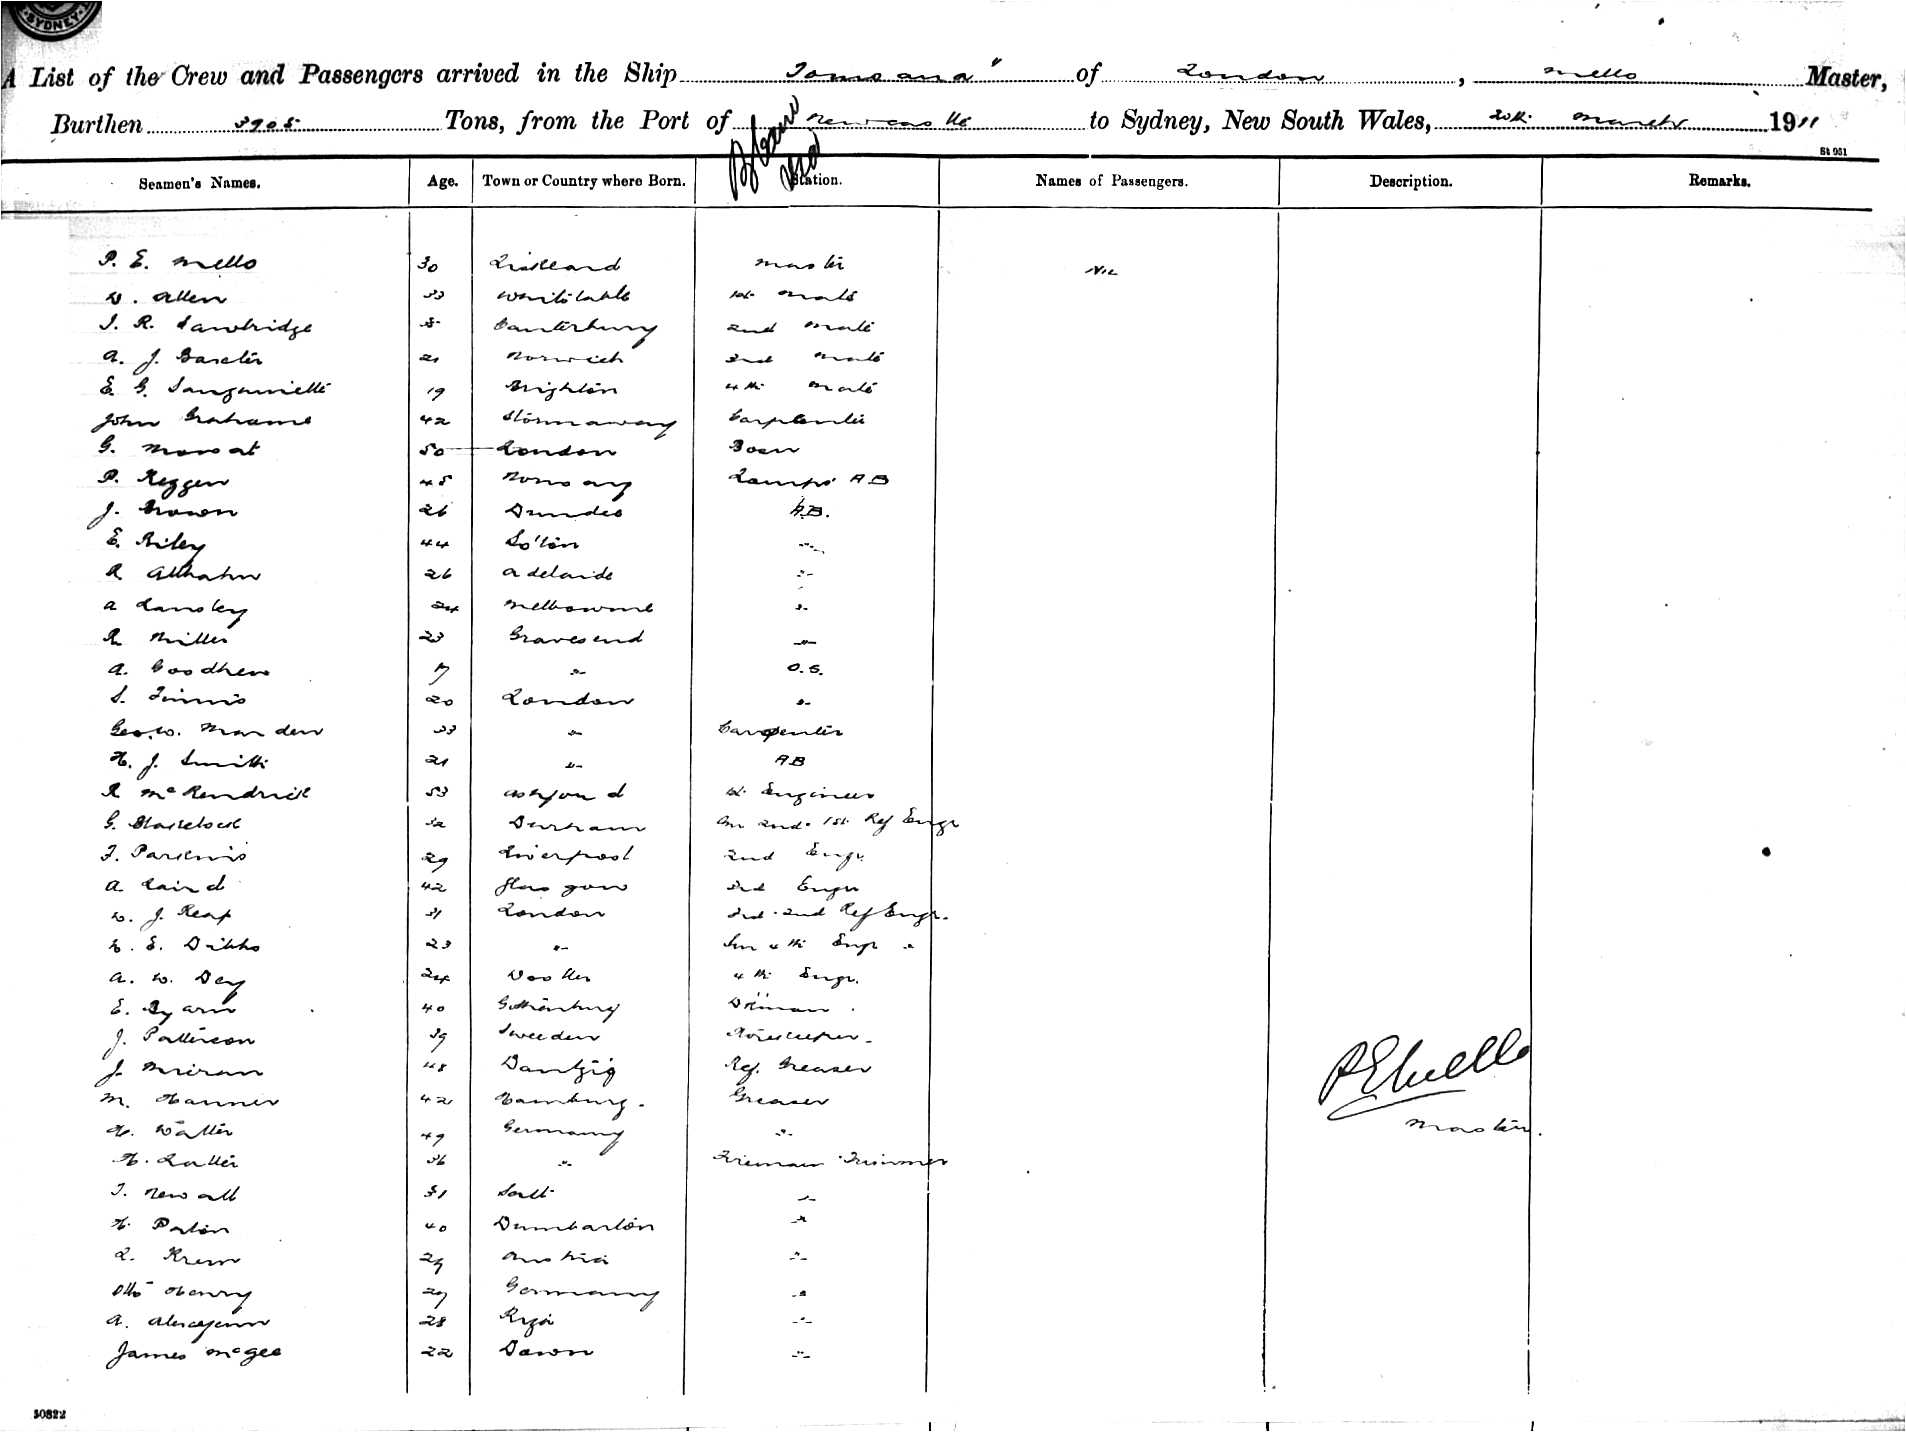 SYDNEY
A List of the Crew and Passengers arrived in the Ship " of London, Mello Master,
Burthen 3905 Tons, from the Port of Newcastle to Sydney, New South Wales, 20th March 1911
St 951
Seamen's Names. Age. Town or Country where Born. Station. Names of Passengers. Description. Remarks.
P. E. Mello 30 Liskeard Master Nil
W. Allen 33 Whitstable 1st Mate
J. R. Sawbridge Canterbury 2nd Mate
A. J. 21 Norwich 3rd Mate
E. G. Sanguinetti 19 Brighton 4th Mate
John Grahame 42 Stornaway Carpenter
G. Mowat 50 London Bosn
P. Heggen 45 Norway Lamps A B
J. Brown 26 Dundee A.B.
E. Riley 44 So'ton "
R 26 Adelaide "
A Lansley 24 Melbourne "
R Miller 23 Gravesend "
A. Goodhew 17 " O.S.
S. Timms 20 London "
Geo. W. Marsden 33 " Carpenter
H. J. Smith 21 " A B
R McKendrick 53 Ashford 1st Engineer
G. 32 Durham 2nd 1st Ref Engr
F. Parkins 29 Liverpool 2nd Engr.
A. Laird 42 Glasgow 3rd Engr
W. J. Reap 31 London 3rd 2nd Ref Engr.
W. E. Dibbs 23 " 4th Engr "
A. W. Dey 24 4th Engr.
E. 40 Gothenburg
J. Patterson 39 Sweeden Storekeeper
J. 48 Dantzig Ref. Greaser
M. Hanner 42 Hamburg. Greaser
H. Walter 49 Germany "
H. 36 " Fireman Trimmer
J. Newall 31 "
H. Paton 40 Dumbarton "
L. Krem 29 Austria "
Otto Henry 29 Germany "
A. 28 Riga "
James McGee 22 Down "
P E Mello
Master.
50822